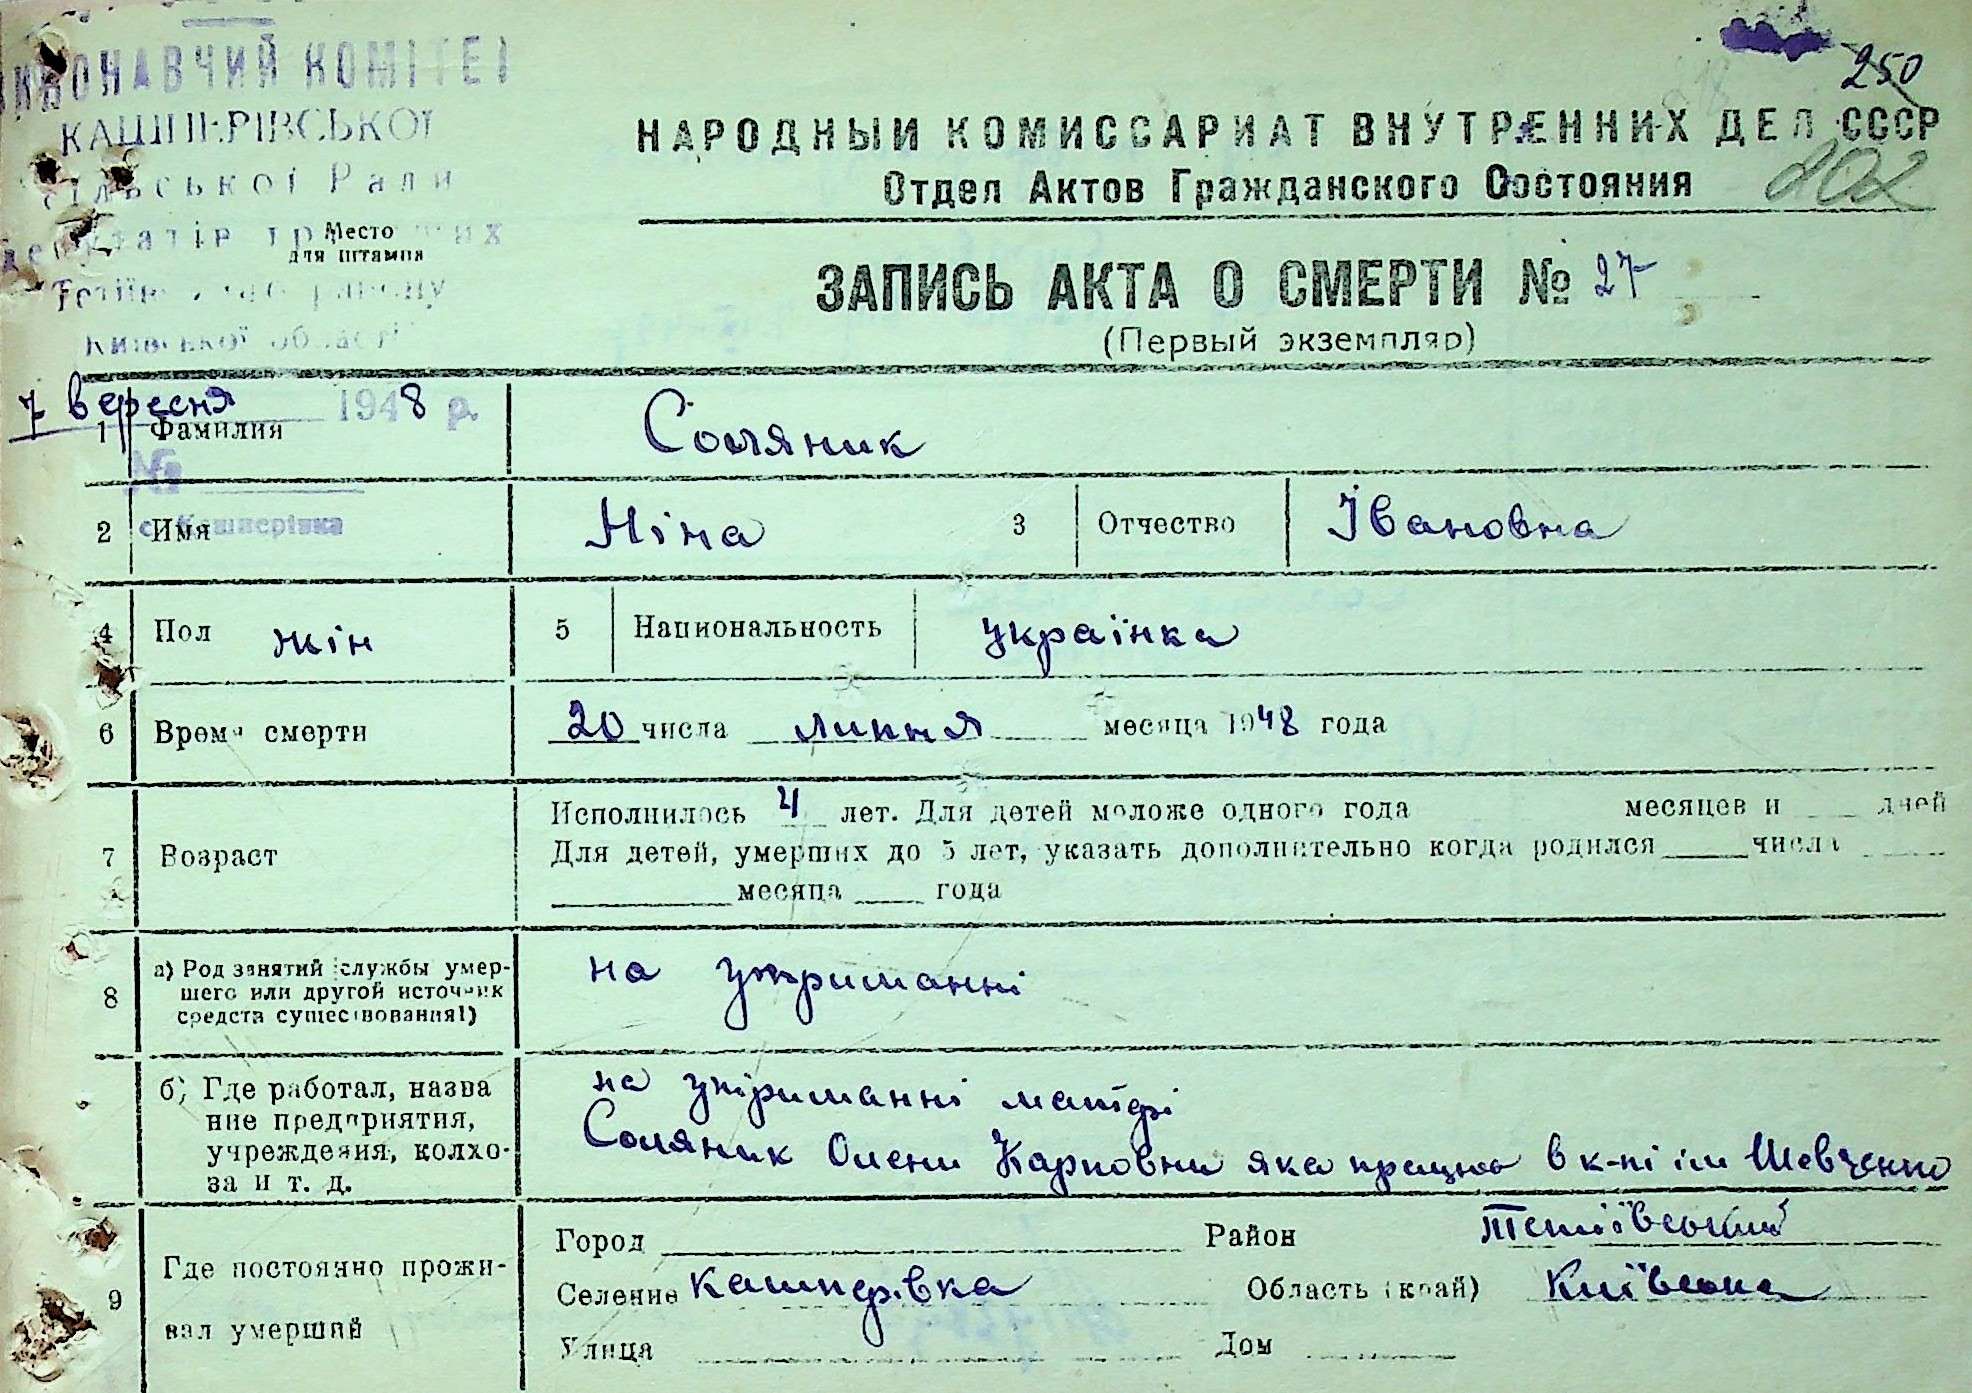 ВИКОНАВЧИЙ КОМІТЕТ
КАШПЕРІВСЬКОЇ
сільської Ради
депутатів
району
Київської області
7 вересня 1948 р.
№
с. Кашперівка
Место
для штампа
250
202
НАРОДНЫЙ КОМИССАРИАТ ВНУТРЕННИХ ДЕЛ СССР
Отдел Актов Гражданского Состояния
ЗАПИСЬ АКТА О СМЕРТИ № 27
(Первый экземпляр)
1 Фамилия Соляник
2 Имя Ніна 3 Отчество Івановна
4 Пол жін 5 Национальность українка
6 Время смерти 20 числа липня месяца 1948 года
7 Возраст
Исполнилось 4 лет. Для детей моложе одного года месяцев и дней
Для детей, умерших до 5 лет, указать дополнительно когда родился числа
месяца года
8 а) Род занятий службы умер-
шего или другой источник
средств существования1)
на утриманні
б) Где работал, назва
ние предприятия,
учреждения, колхо-
за и т. д.
на утриманні матері
Соляник Олени Карповни яка працює в к-пі ім Шевченко
9 Где постоянно прожи-
вал умерший
Город Район Тетіївський
Селение Кашперівка Область (край) Київська
Улица Дом